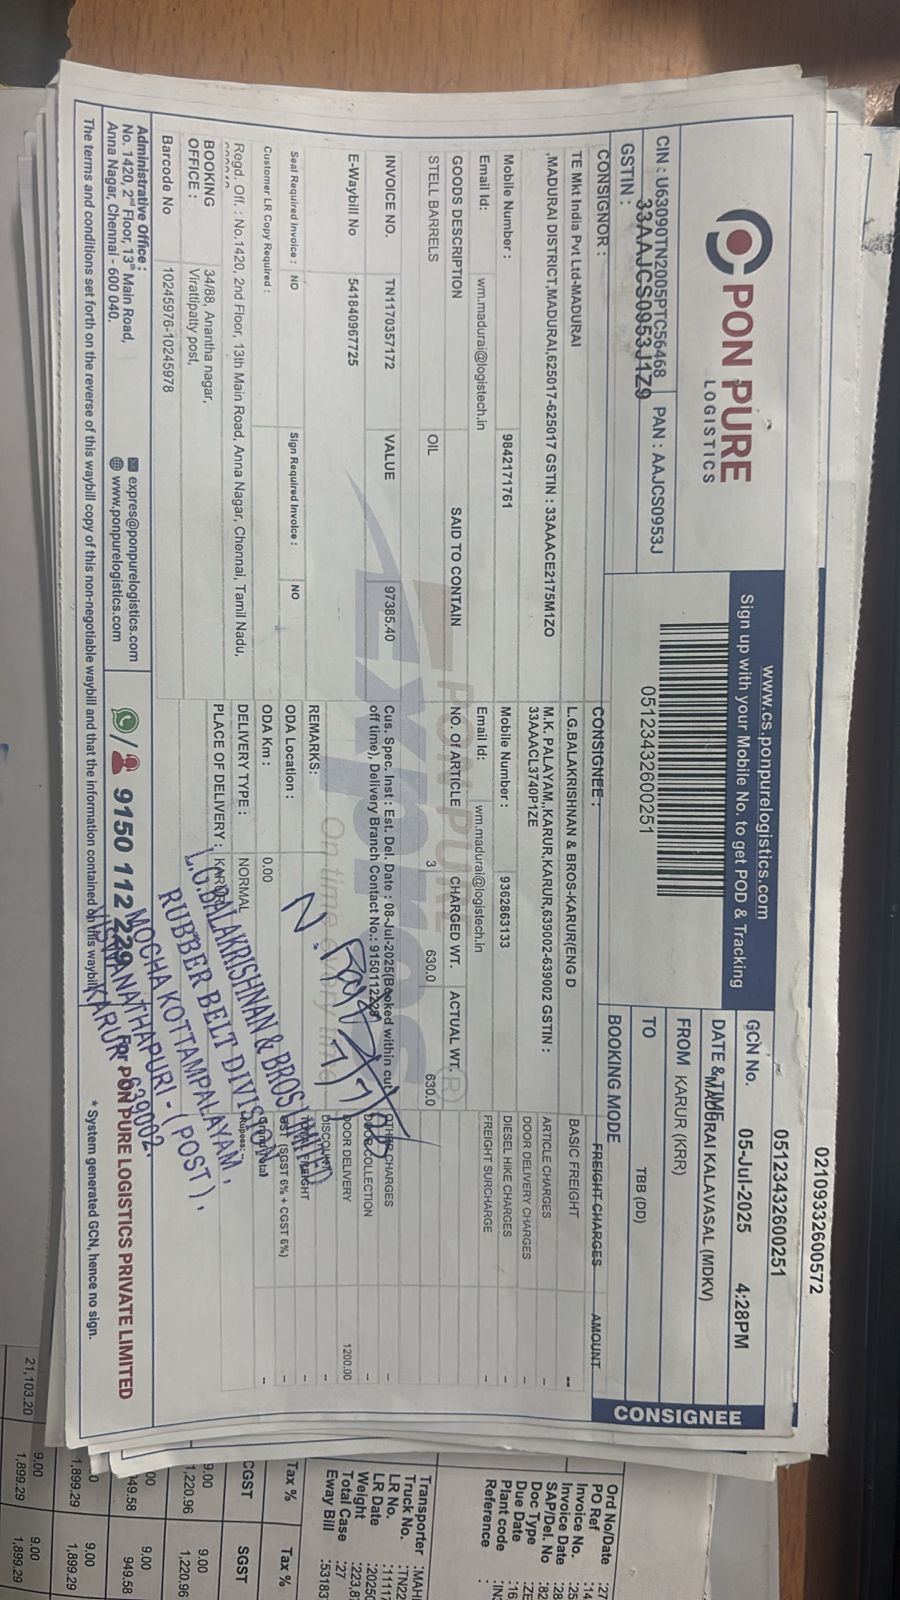 02109332600572
05123432600251
PON PURE
LOGISTICS
CIN : U63090TN2005PTC56468
PAN : AAJCS0953J
GSTIN : 33AAJCS0953J1Z9
www.cs.ponpurelogistics.com
Sign up with your Mobile No. to get POD & Tracking
05123432600251
GCN No. 05-Jul-2025 4:28PM
DATE & TIME
FROM MADURAI KALAVASAL (MDKV)
TO KARUR (KRR)
BOOKING MODE TBB (DD)
CONSIGNEE
CONSIGNOR :
TE Mkt India Pvt Ltd-MADURAI
,MADURAI DISTRICT,MADURAI,625017-625017 GSTIN : 33AAACE2175M1ZO
Mobile Number : 9842171761
Email Id: wm.madurai@logistech.in
CONSIGNEE :
L.G.BALAKRISHNAN & BROS-KARUR(ENG D
M.K. PALAYAM,,KARUR,KARUR,639002-639002 GSTIN :
33AAACL3740P1ZE
Mobile Number : 9362863133
Email Id: wm.madurai@logistech.in
FREIGHT CHARGES AMOUNT
BASIC FREIGHT --
ARTICLE CHARGES -
DOOR DELIVERY CHARGES -
DIESEL HIKE CHARGES -
FREIGHT SURCHARGE -
GOODS DESCRIPTION SAID TO CONTAIN NO. Of ARTICLE CHARGED WT. ACTUAL WT.
STELL BARRELS OIL 3 630.0 630.0
INVOICE NO. TN1170357172 VALUE 97385.40
E-Waybill No 541840967725
Cus. Spec. Inst : Est. Del. Date : 08-Jul-2025(Booked within cut
off time), Delivery Branch Contact No.: 9150112229
OTHER CHARGES -
DOOR COLLECTION -
DOOR DELIVERY 1200.00
DISCOUNT -
TOTAL FREIGHT -
GST (SGST 6% + CGST 6%) -
Grand Total --
Rupees:
PON PURE
express
On time
Seal Required Invoice : NO Sign Required Invoice : NO
Customer LR Copy Required :
REMARKS:
ODA Location :
ODA Km : 0.00
DELIVERY TYPE : NORMAL
PLACE OF DELIVERY : KARUR
Regd. Off. : No.1420, 2nd Floor, 13th Main Road, Anna Nagar, Chennai, Tamil Nadu,
BOOKING OFFICE : 34/88, Anantha nagar,
Virattipatty post,
Barcode No 10245976-10245978
L.G.BALAKRISHNAN & BROS LIMITED
RUBBER BELT DIVISION
MOCHA KOTTAMPALAYAM,
VISWANATHAPURI - (POST),
KARUR - 639002.
Administrative Office :
No. 1420, 2nd Floor, 13th Main Road,
Anna Nagar, Chennai - 600 040.
expres@ponpurelogistics.com
www.ponpurelogistics.com
9150 112 229
For PON PURE LOGISTICS PRIVATE LIMITED
The terms and conditions set forth on the reverse of this waybill copy of this non-negotiable waybill and that the information contained on this waybill
* System generated GCN, hence no sign.
Ord No/Date :27
PO Ref :14
Invoice No. :25
Invoice Date :28
SAP/Del. No :82
Doc Type :ZE
Due Date :16
Plant code :IN
Reference :
Transporter :MAH
Truck No. :TN22
LR No. :1111
LR Date :2025
Weight :223,8
Total Case :27
Eway Bill :53183
Tax % Tax %
CGST SGST
9.00 9.00
1,220.96 1,220.96
9.00
949.58 949.58
9.00
1,899.29 1,899.29
21,103.20 9.00 9.00
1,899.29 1,899.29